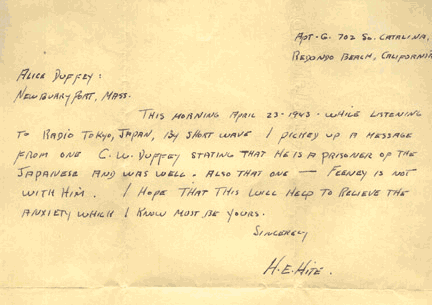 APT-G. 702 SO. CATALINA,
REDONDO BEACH, CALIFORNIA
ALICE DUFFEY:
NEWBURYPORT, MASS.
THIS MORNING APRIL 23-1943 - WHILE LISTENING
TO RADIO TOKYO, JAPAN, BY SHORT WAVE I PICKED UP A MESSAGE
FROM ONE C. W. DUFFEY STATING THAT HE IS A PRISONER OF THE
JAPAINESE AND WAS WELL. ALSO THAT ONE — FEENEY IS NOT
WITH HIM. I HOPE THAT THIS WILL HELP TO RELIEVE THE
ANXIETY WHICH I KNOW MUST BE YOURS.
SINCERELY
H. E. HITE.